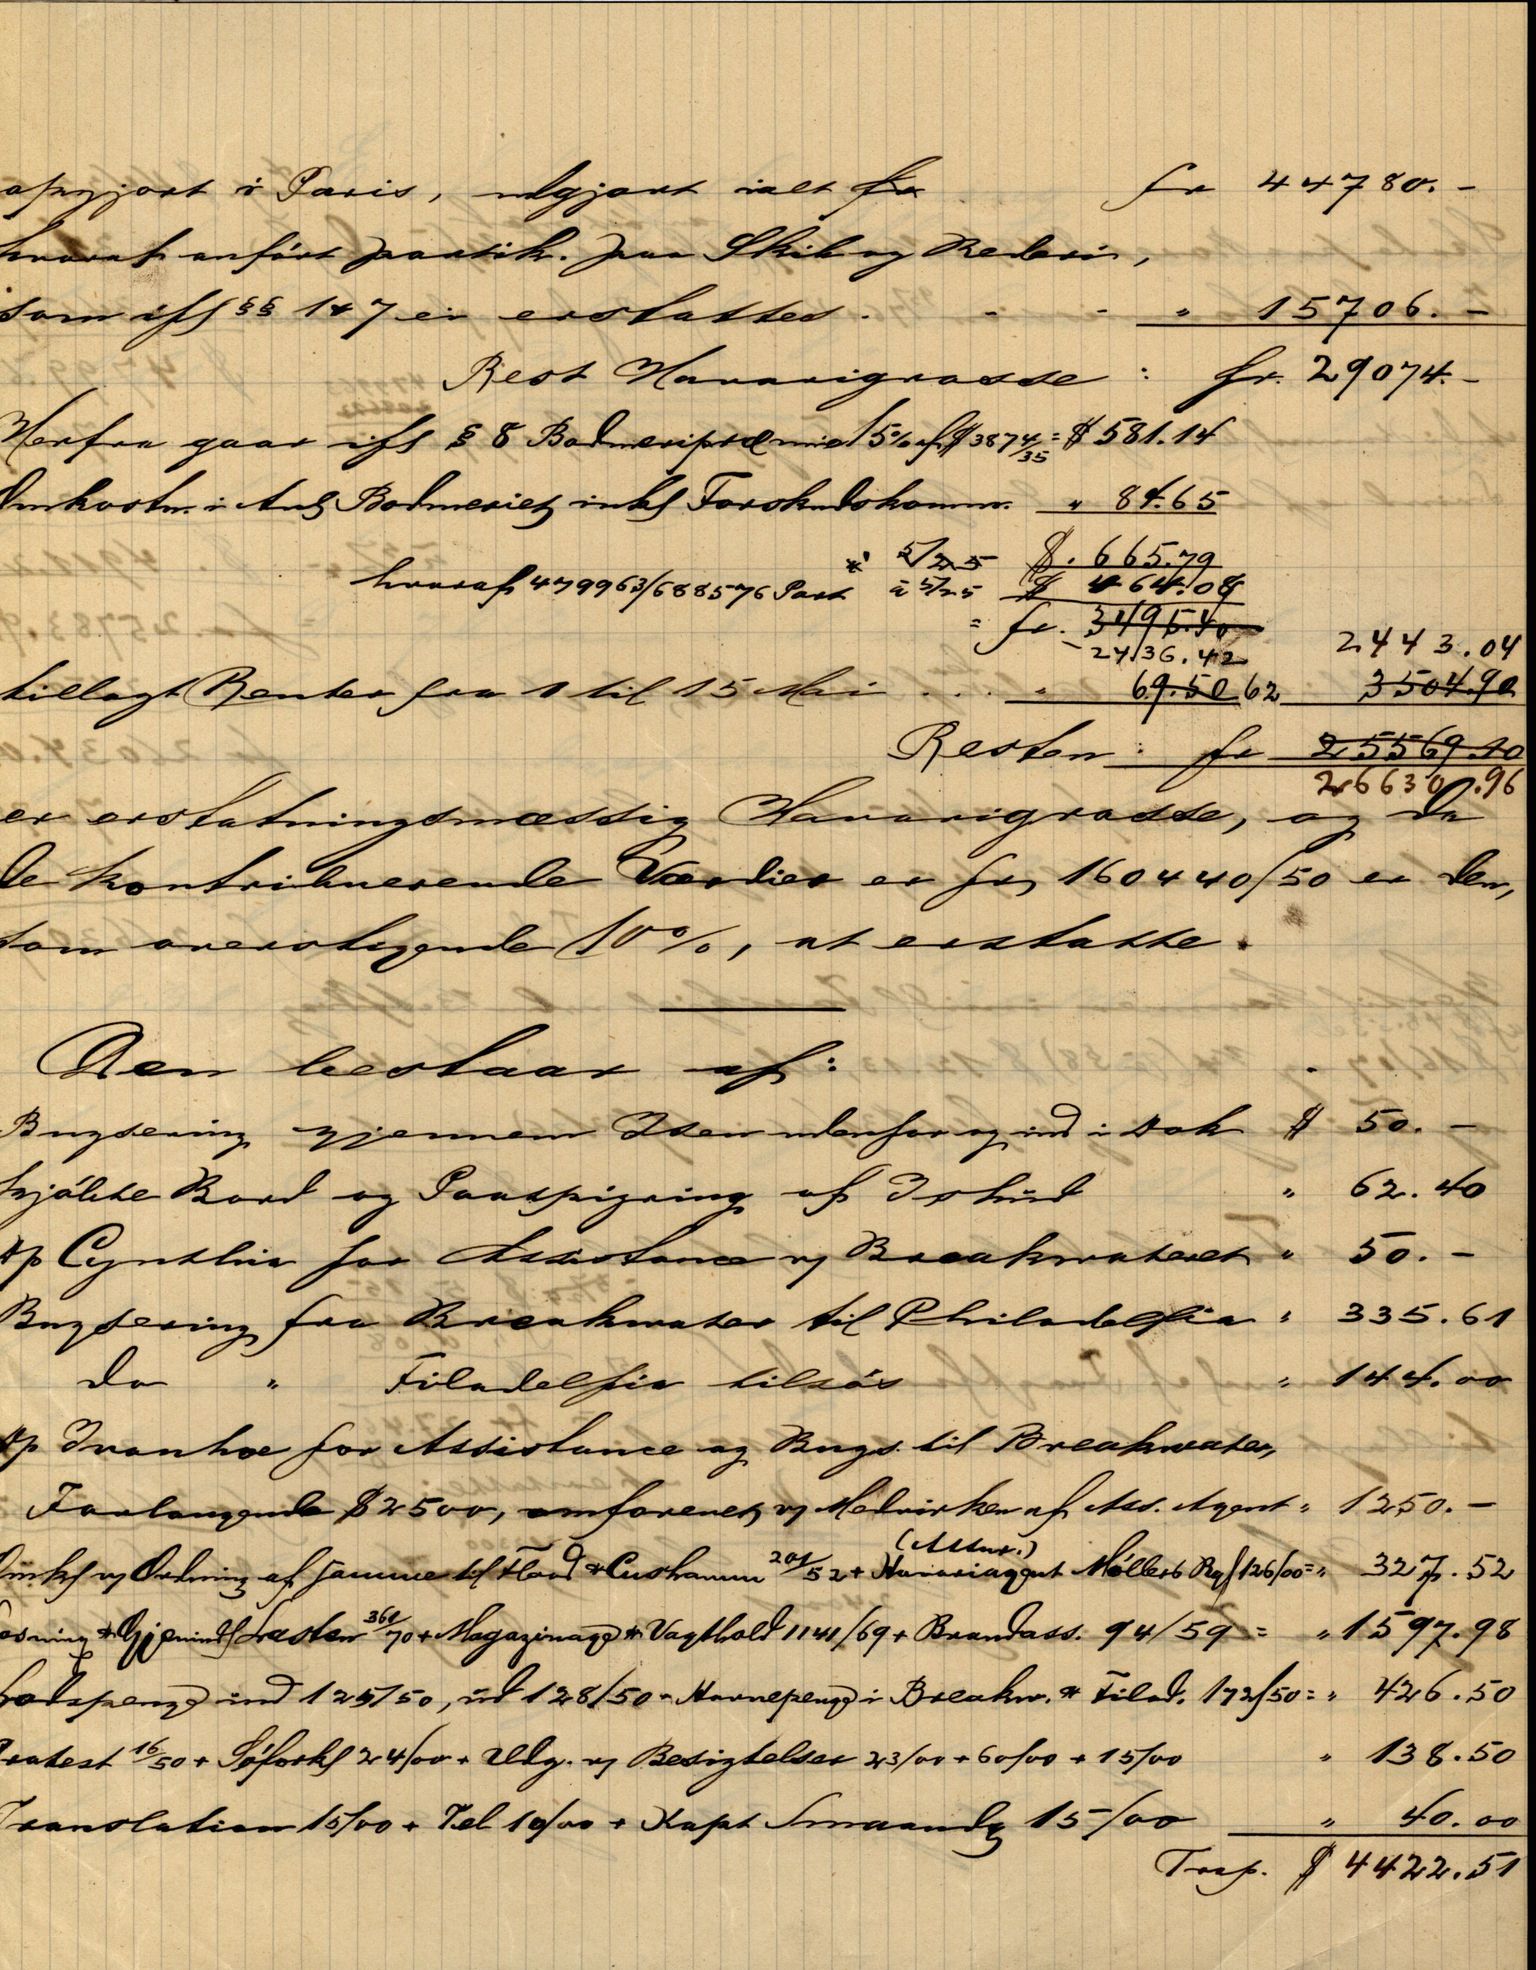 opgjort i Paris, udgjort ialt fr fr 44780.-
hvoraf anført partik. paa Skib og Rederi,
som ifl §§ 147 ei erstattes. - - - " 15706.-
Rest Havarigrosse : fr. 29074.-
Herfra gaar ifl § 8 Bodmeripræmie 15% af $ 3874/35 = $ 581.14
Omkostn. i Anl Bodmeriet inkl Forskudskomm. " 84.65
5/25 $. 665.79
hvoraf 479963/688576 Part à 5/25 $ 464.08
= fr. 3495.40
2436.42 2443.04
tillagt Renter fra 1 til 15 Mai . . . . " 69.50 62 3504.90
Resten : fr 25569.10
26630.96
er erstatningsmæssig Havarigrosse, og da
de kontribuerende Værdier er fr 160440/50 er den,
som overstigende 10%, at erstatte.
Den bestaar af:
Bugsering gjennem Isen udenfor og ind i Dok $ 50.-
kjøbte Bord og Paaspigring af Ishud " 62.40
Dp Cynthia for Assistance v Breakwateret " 50.-
Bugsering fra Breakwater til Philadelfia " 335.61
do " Filadelfia tilsøs " 144.00
Dp Ivanhoe for Assistance og Bugs. til Breakwater,
Forlangende $ 2500, omforenet v Medvirken af Ass. Agent " 1250.-
Omk v Ordning af samme til Flood + Custhamm 201/52 + Havariagent (Assur.) Møllers Rg 126/00 = " 327.52
Losning + Gjenindl Lasten 361/70 + Magazinage + Vagthold 1141/69 + Brandass. 94/59 = " 1597.98
Lodspenge ind 125/50, ud 128/50 - Havnepenge i Breakw. + Filad. 172/50 = " 426.50
Protest 16/50 + Søforkl 24/00 + Udg. v Besigtelser 23/00 + 60/00 + 15/00 " 138.50
Translation 15/00 + Tel 10/00 + Kapt Smaaudg 15/00 " 40.00
Trsp. $ 4422.51